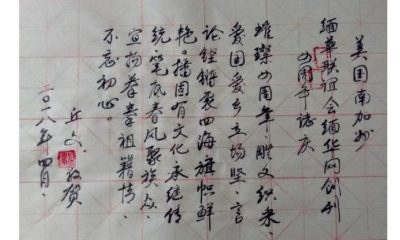 美国南加州
缅华联谊会缅华网创刊
四周年誌庆
璀璨四周年，雕文织采。
爱国爱乡立场坚，言
论铿锵聚四海，旗帜鲜
艳。播固有文化，承继传
统。笔底春风聚族众，
宣扬拳拳祖籍情，
不忘初心。
丘文 敬贺
二〇一八年四月